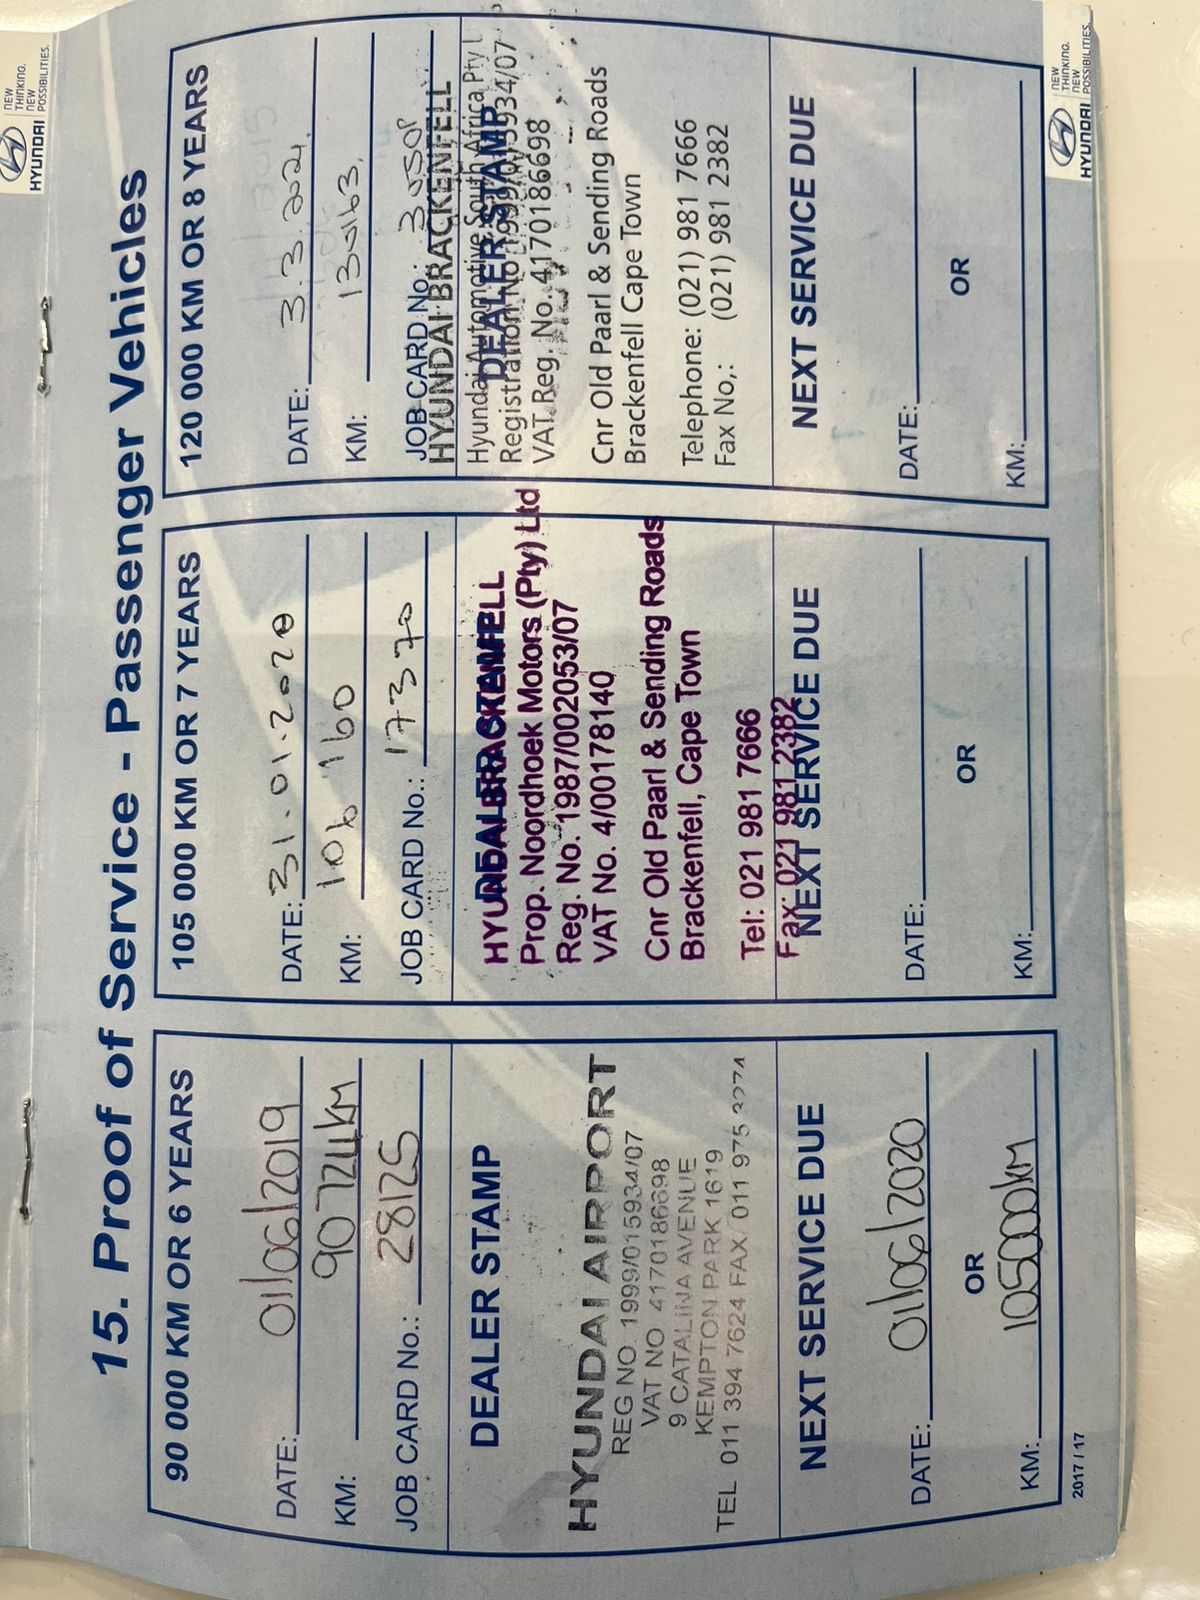 HYUNDAI
NEW
THINKING.
NEW
POSSIBILITIES.
15. Proof of Service - Passenger Vehicles
90 000 KM OR 6 YEARS
DATE: 01/06/2019
KM: 90724KM
JOB CARD No.: 28125
DEALER STAMP
HYUNDAI AIRPORT
REG NO. 1999/015934/07
VAT NO 4170186698
9 CATALINA AVENUE
KEMPTON PARK 1619
TEL 011 394 7624 FAX 011 975
NEXT SERVICE DUE
DATE: 01/06/2020
OR
KM: 105000KM
2017 / 17
105 000 KM OR 7 YEARS
DATE: 31.01.2020
KM: 106 160
JOB CARD No.: 17370
DEALER STAMP
HYUNDAI BRACKENFELL
Prop. Noordhoek Motors (Pty) Ltd
Reg. No. 1987/002053/07
VAT No. 4/00178140
Cnr Old Paarl & Sending Roads
Brackenfell, Cape Town
Tel: 021 981 7666
Fax: 021 981 2382
NEXT SERVICE DUE
DATE:
OR
KM:
120 000 KM OR 8 YEARS
DATE: 3.3.2021
KM:
JOB CARD No.:
HYUNDAI BRACKENFELL
DEALER STAMP
Hyundai Automotive South Africa Pty L
Registration No 1999/015934/07
VAT Reg. No. 4170186698
Cnr Old Paarl & Sending Roads
Brackenfell Cape Town
Telephone: (021) 981 7666
Fax No,: (021) 981 2382
NEXT SERVICE DUE
DATE:
OR
KM:
HYUNDAI
NEW
THINKING.
NEW
POSSIBILITIES.